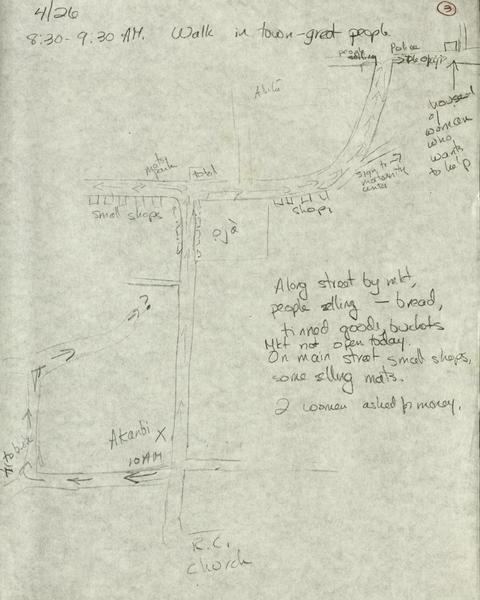 4/26
3
8:30 - 9:30 AM. Walk in town - great people
people selling
Police
house of women who wants to help
sign to → maternity center
total
small shops
shops
ọjà
Along street by mkt,
people selling — bread,
tinned goods, buckets
Mkt not open today.
On main street small shops,
some selling mats.
2 women asked for money.
→?
Akanbi X
10 AM
R.C.
Church